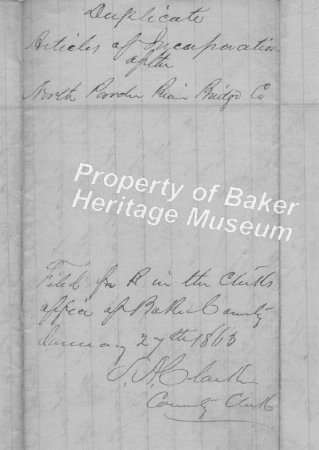 Duplicate
Articles of Incorporation
of the
North Powder River Bridge Co
Property of Baker
Heritage Museum
Filed for R in the Clerks
office of Baker County
January 27th 1863
A Clark
County Clerk